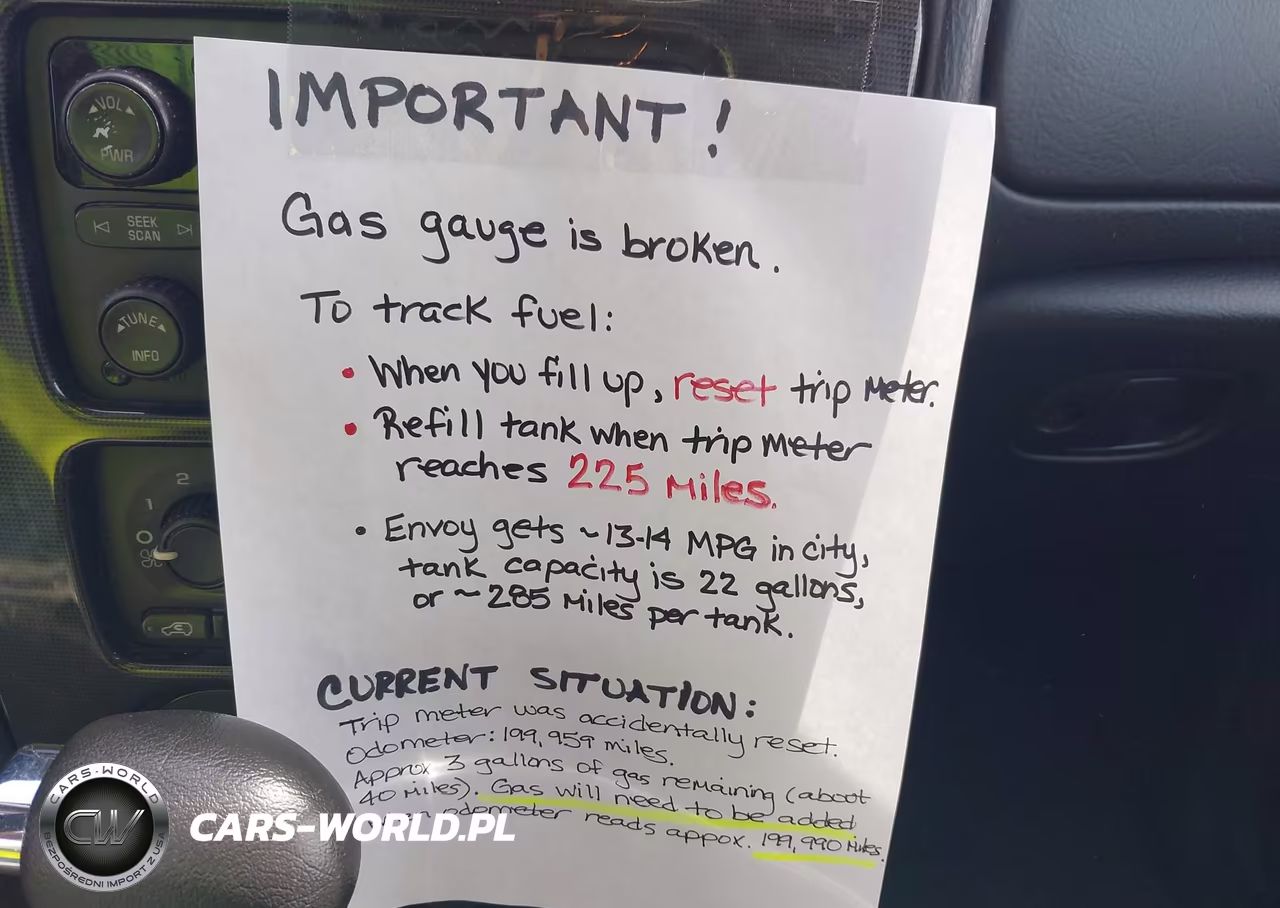 ▲VOL▲
PWR
SEEK
SCAN
▲TUNE▲
INFO
2
1
0
IMPORTANT!
Gas gauge is broken.
To track fuel:
• When you fill up, reset trip meter.
• Refill tank when trip meter
reaches 225 Miles.
• Envoy gets ~13-14 MPG in city,
tank capacity is 22 gallons,
or ~285 Miles per tank.
CURRENT SITUATION:
Trip meter was accidentally reset.
Odometer: 199,959 miles.
Approx 3 gallons of gas remaining (about
40 Miles). Gas will need to be added
odometer reads appox. 199,990 Miles.
CARS-WORLD
CW
BEZPOŚREDNI IMPORT Z USA
CARS-WORLD.PL